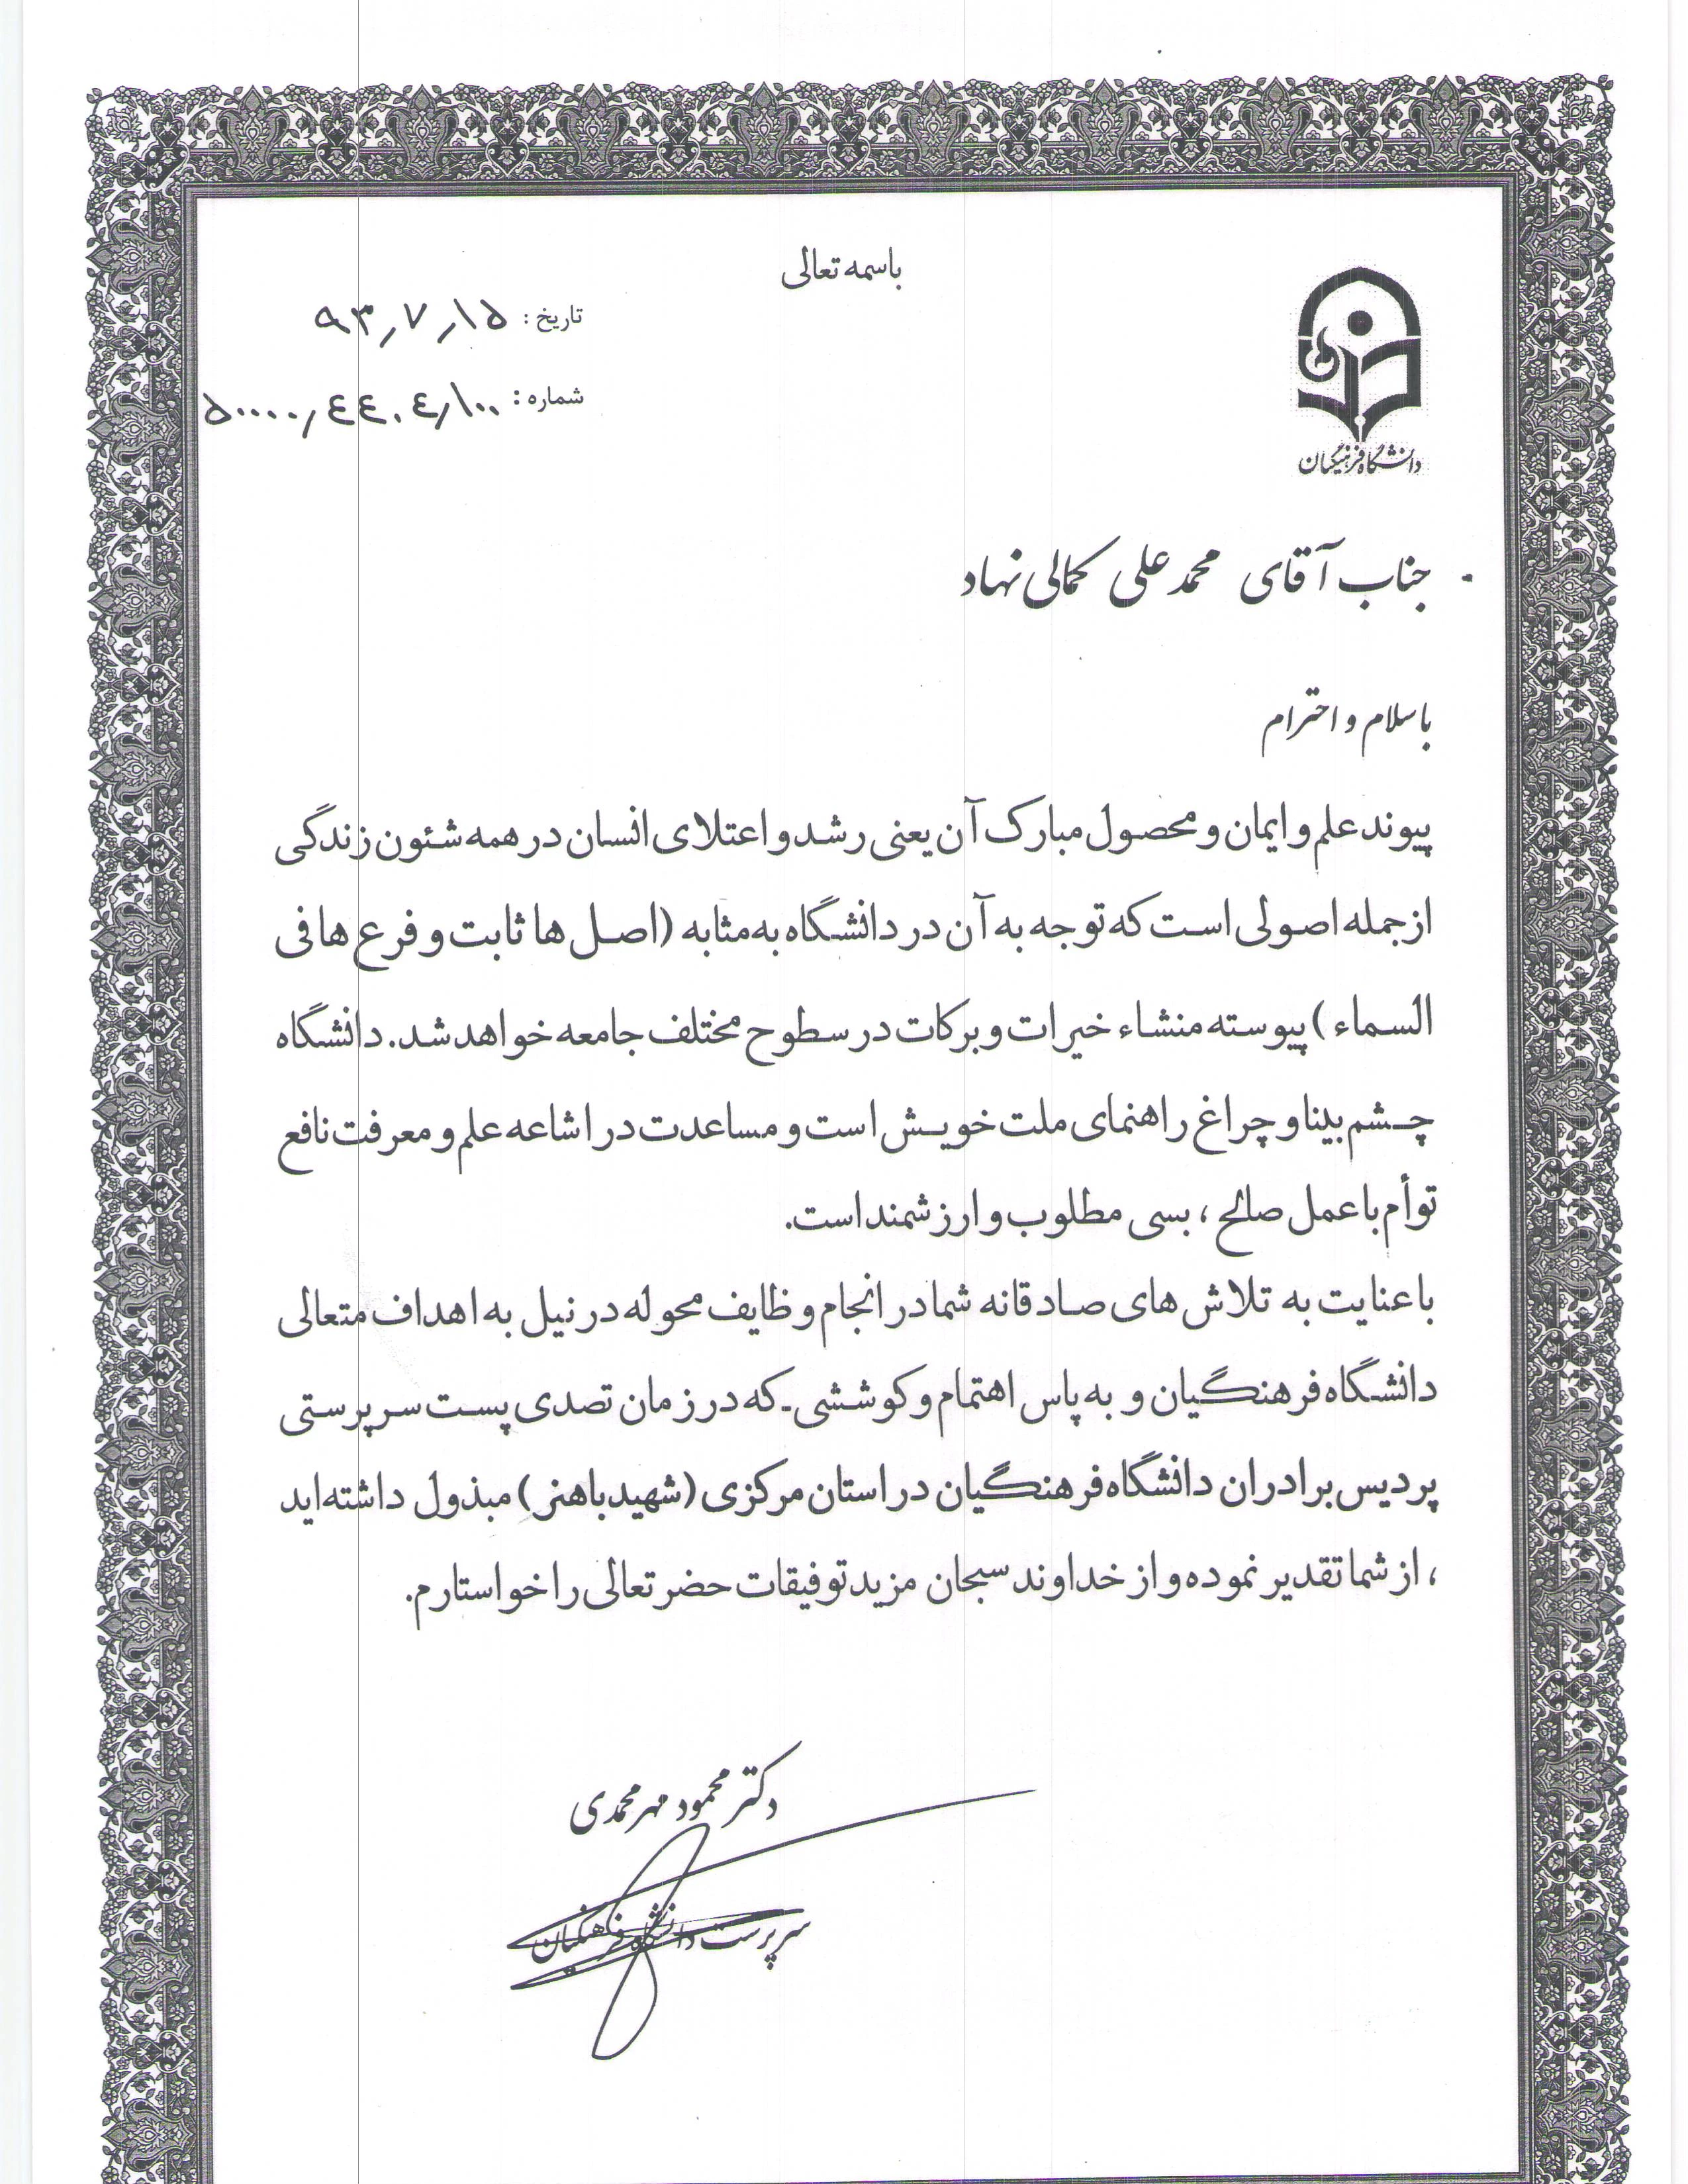 باسمه تعالی
تاریخ : ۹۳٫۷٫۱۵
شماره : ۵۰۰۰۰٫٤٤۰٤٫۱۰۰
دانشگاه فرهنگیان
جناب آقای محمد علی کمالی نهاد
با سلام و احترام
پیوند علم و ایمان و محصول مبارک آن یعنی رشد و اعتلای انسان در همه شئون زندگی
از جمله اصولی است که توجه به آن در دانشگاه به مثابه (اصل ها ثابت و فرع ها فی
السماء) پیوسته منشاء خیرات و برکات در سطوح مختلف جامعه خواهد شد. دانشگاه
چشم بینا و چراغ راهنمای ملت خویش است و مساعدت در اشاعه علم و معرفت نافع
توأم با عمل صالح ، بسی مطلوب و ارزشمند است.
با عنایت به تلاش های صادقانه شما در انجام وظایف محوله در نیل به اهداف متعالی
دانشگاه فرهنگیان و به پاس اهتمام و کوششی - که در زمان تصدی پست سرپرستی
پردیس برادران دانشگاه فرهنگیان در استان مرکزی (شهید باهنر) مبذول داشته اید
، از شما تقدیر نموده و از خداوند سبحان مزید توفیقات حضرتعالی را خواستارم.
دکتر محمود مهرمحمدی
سرپرست دانشگاه فرهنگیان